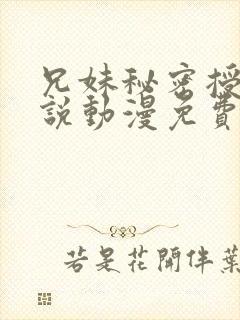 兄妹秘密授
說動漫免費
若是花開伴葉